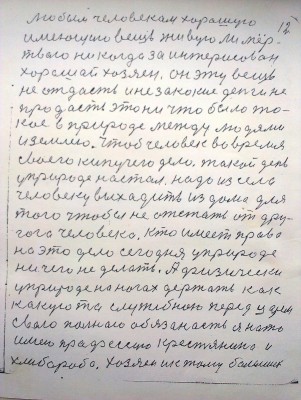 12
любым человекам хорошую
имеющию вещь живую ли мёр-
твою никогда за интерисован
хорошай хозяен, он эту вещь
не отдасть и не закакие деги не
продасть это ни что было та-
кое в природе между людями
и землею. Чтоб человек во время
своего кипучего дело, такой день
у природе настал, надо из села
человеку выхадить из дома для
того чтобы не отстать от дру-
гога человека. Кто имеет права
на это дело сегодня у природе
ничего не делать. А физически
у природе на ногах держать как
какую та службою перед у цем
свою полною обязаность я на то
имею профессию крестянина и
хлибароба, хозяен и к тому больших